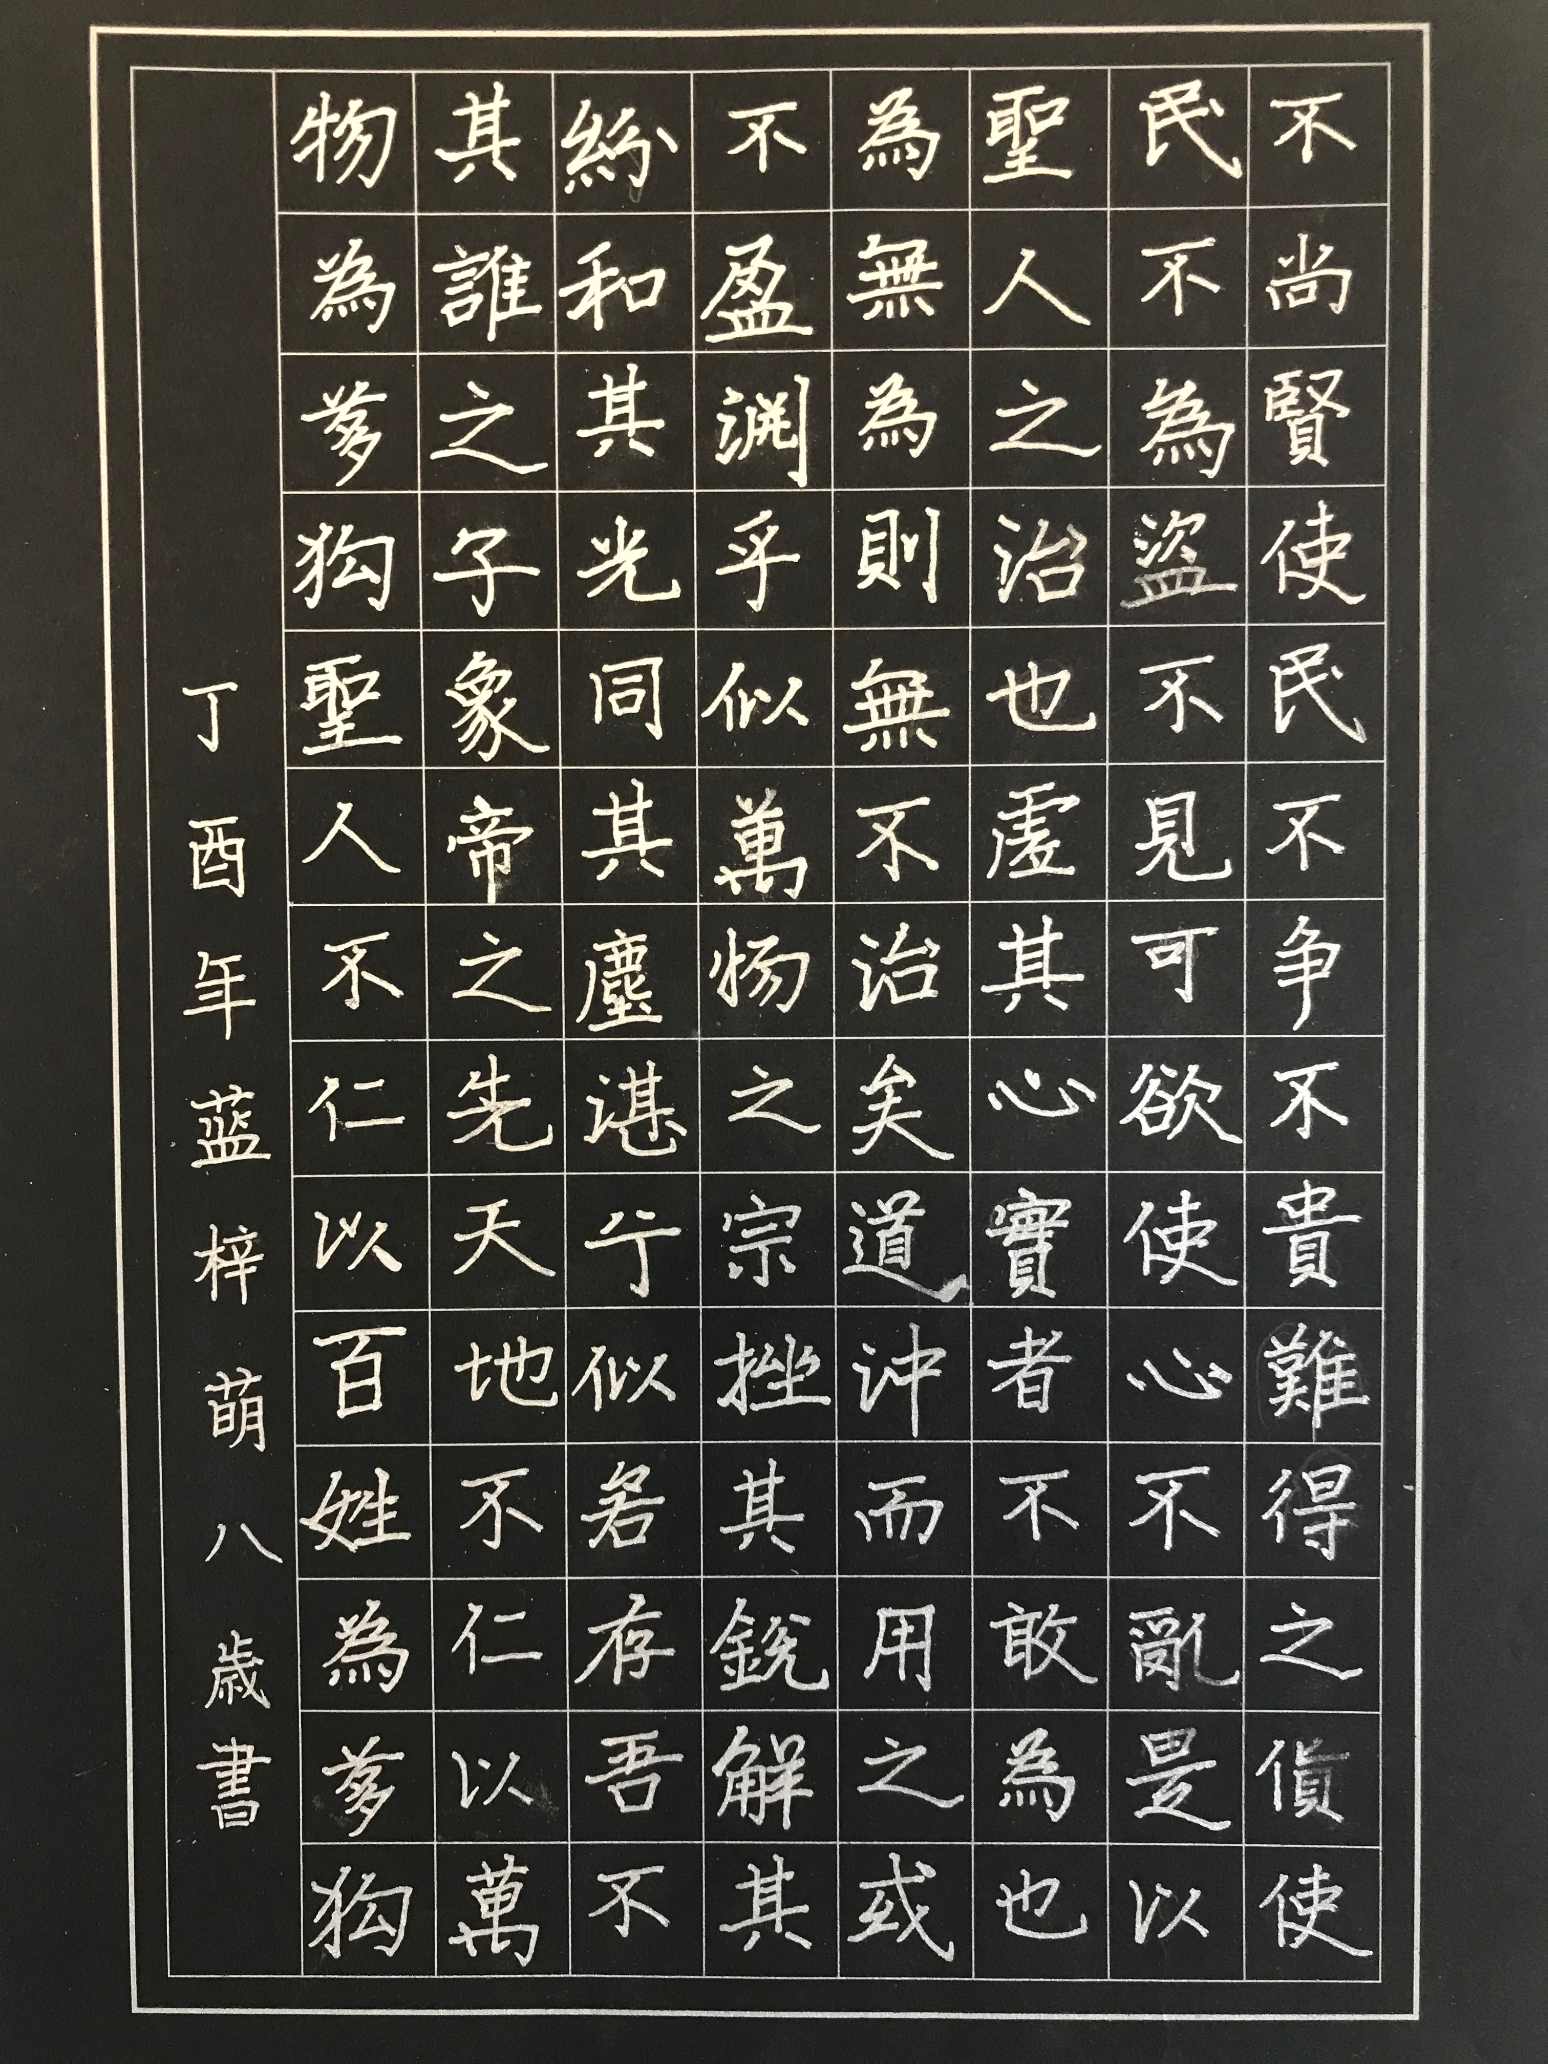 不尚賢使民不争不貴難得之貨使
民不為盜不見可欲使心不亂是以
聖人之治也虛其心實者不敢為也
為無為則無不治矣道沖而用之或
不盈淵乎似萬物之宗挫其銳解其
紛和其光同其塵湛兮似若存吾不
其誰之子象帝之先天地不仁以萬
物為芻狗聖人不仁以百姓為芻狗
丁酉年蓝梓萌八歳書